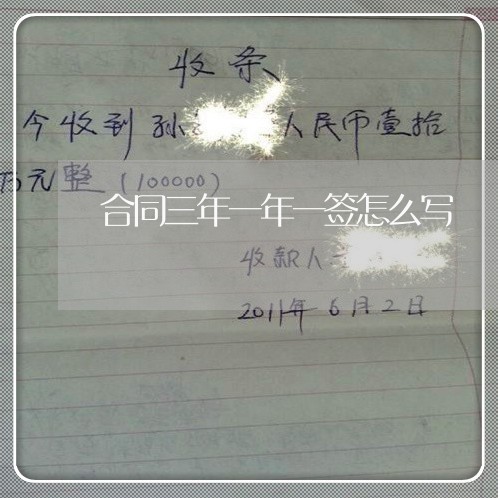 收条
今收到孙 人民币壹拾
万元整（100000）
合同三年一年一签怎么写
收款人
2011年6月2日